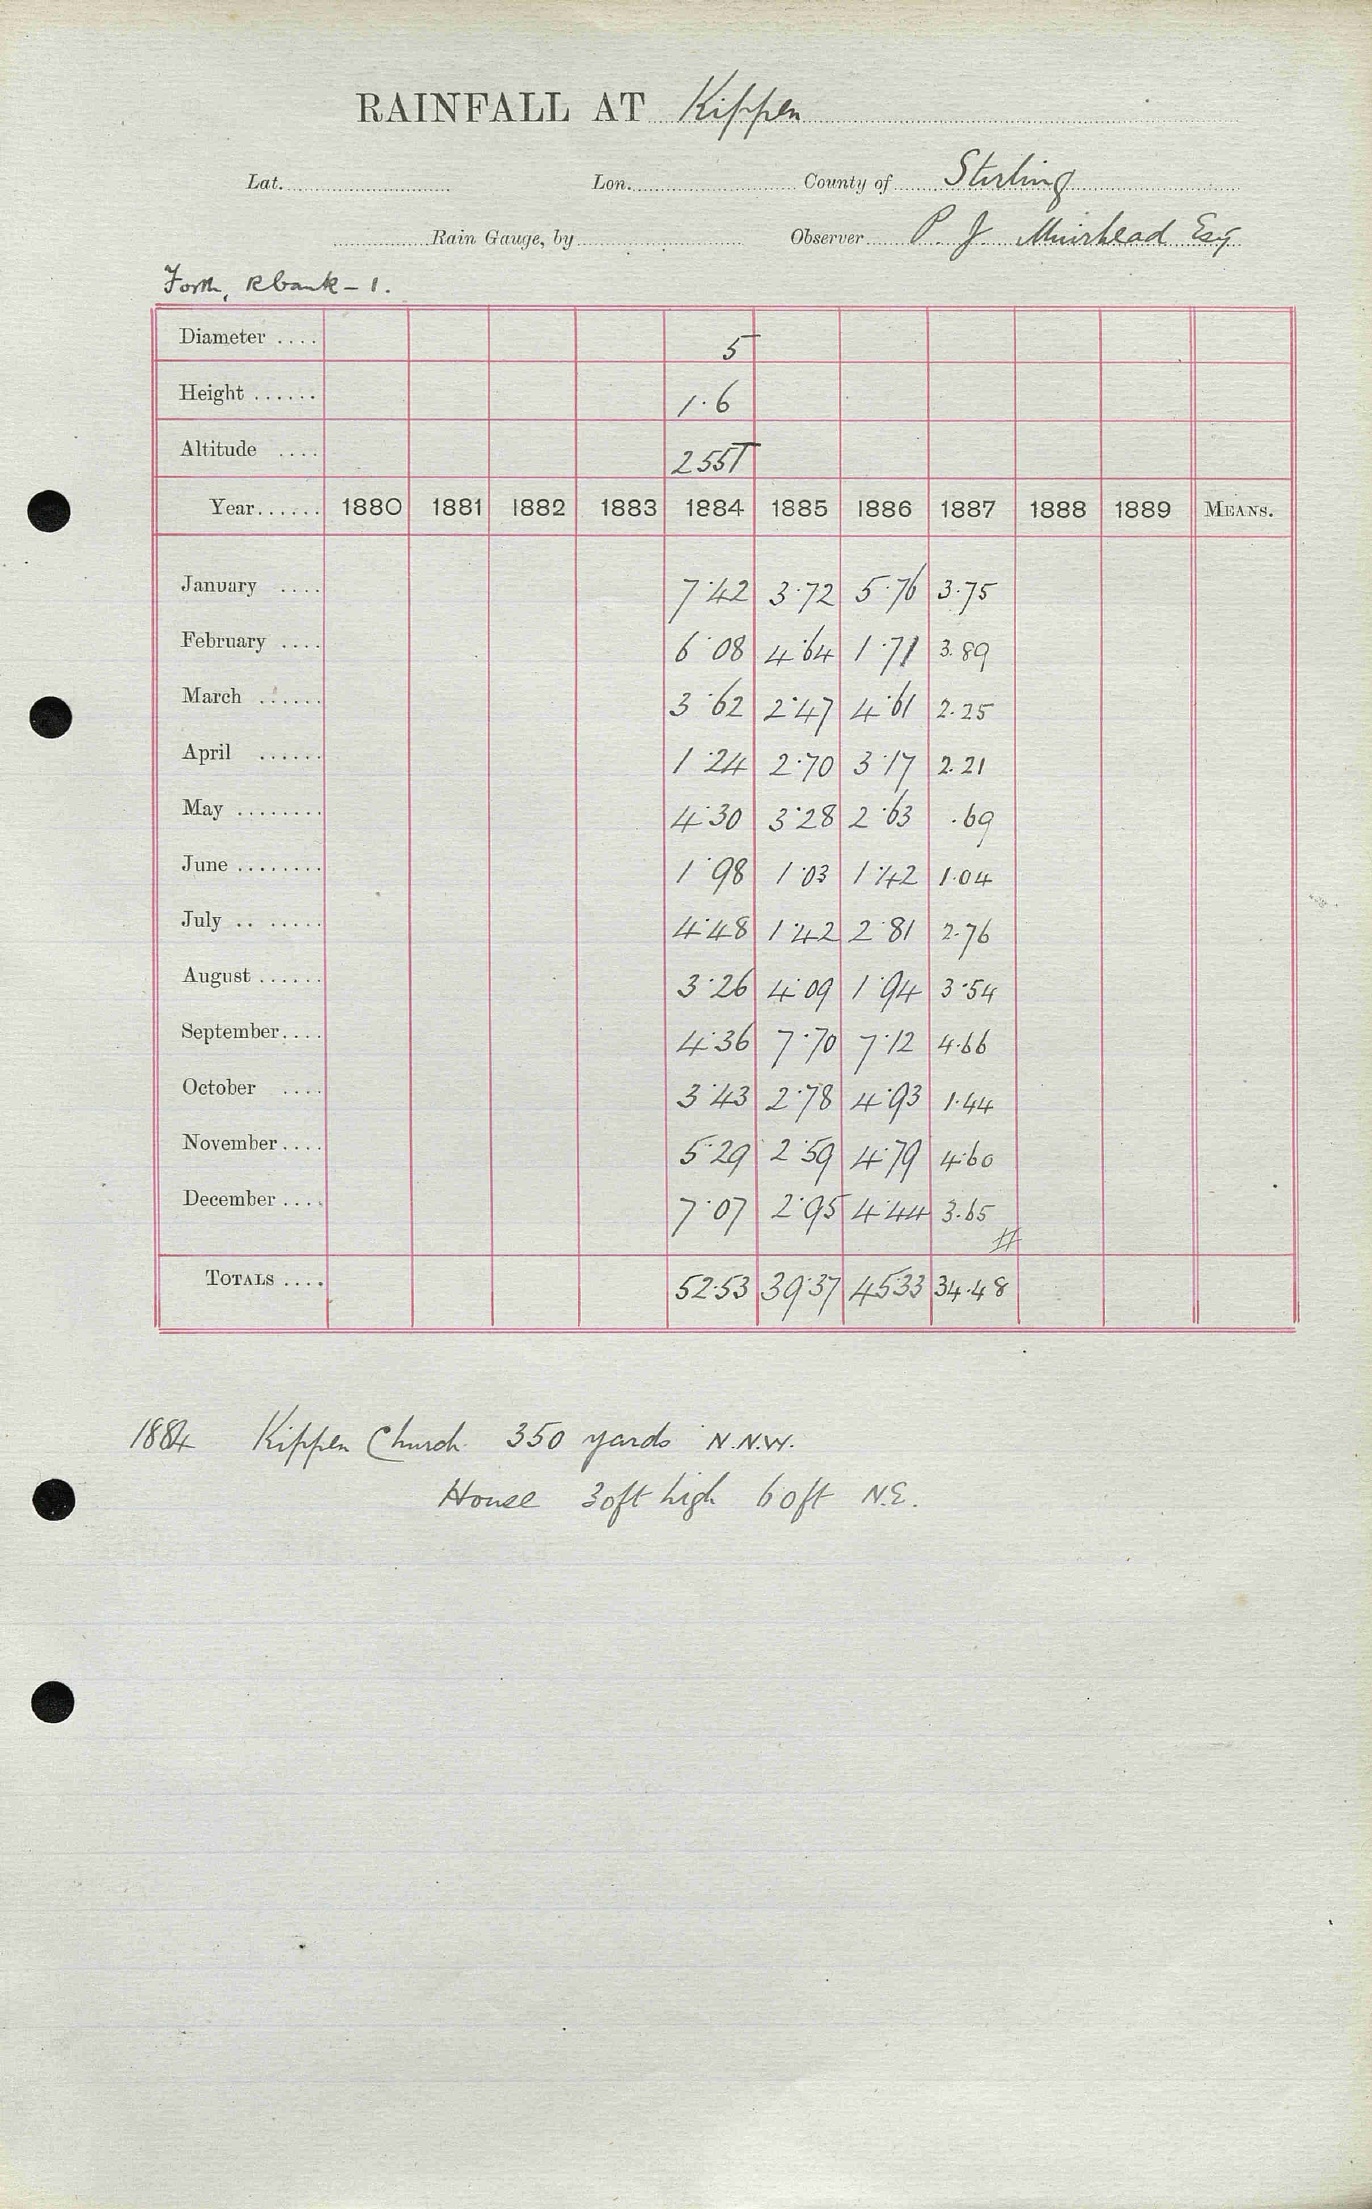 RAINFALL AT Kippen
Lat. Lon. County of Stirling
Rain Gauge, by Observer P. J. Muirhead Esq
Forth, Rbank - 1.
Diameter .... 5
Height ...... 1.6
Altitude .... 255T
Year...... 1880 1881 1882 1883 1884 1885 1886 1887 1888 1889 MEANS.
January .... 7.42 3.72 5.76 3.75
February .... 6.08 4.64 1.71 3.89
March ...... 3.62 2.47 4.61 2.25
April ...... 1.24 2.70 3.17 2.21
May ........ 4.30 3.28 2.63 .69
June ........ 1.98 1.03 1.42 1.04
July .. ..... 4.48 1.42 2.81 2.76
August ...... 3.26 4.09 1.94 3.54
September.... 4.36 7.70 7.12 4.66
October .... 3.43 2.78 4.93 1.44
November.... 5.29 2.59 4.79 4.60
December .... 7.07 2.95 4.44 3.65
TOTALS .... 52.53 39.37 45.33 34.48
1884 Kippen Church 350 yards N.N.W.
House 30ft high 60ft N.E.